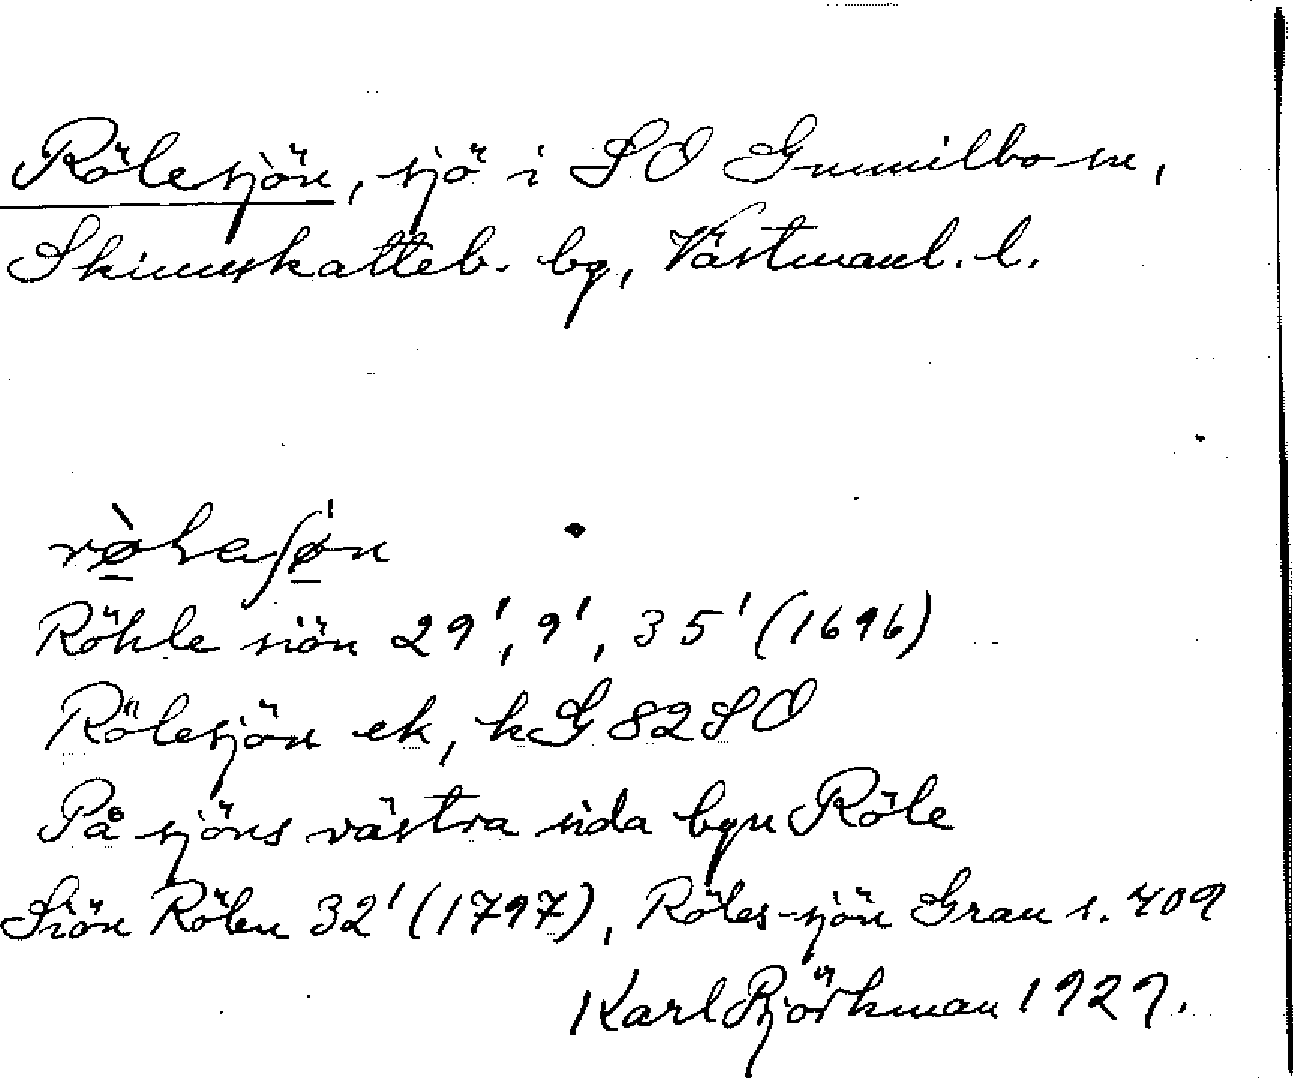 Rölesjön, sjö i SO Gunnilbo sn,
Skinnskatteb. bg, Västmanl. l.
Röhle siön 29', 9', 35' (1696)
Rölesjön ek, kG 82 SO
På sjöns västra sida byn Röle
Siön Rölen 32' (1797), Röles-sjön Grau s. 409
Karl Björkman 1929.